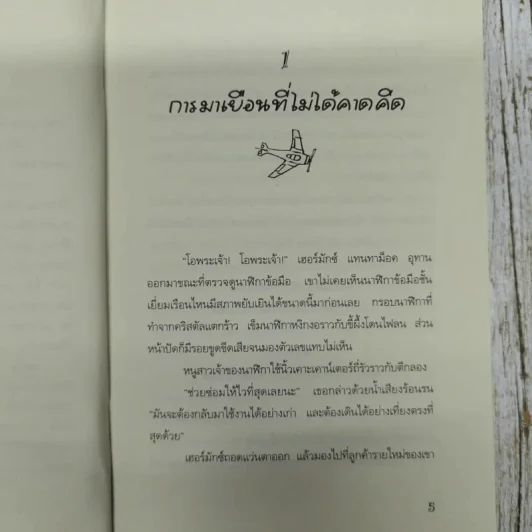 1
การมาเยือนที่ไม่ได้คาดคิด
"โอพระเจ้า! โอพระเจ้า!" เฮอร์มักซ์ แทนทาม็อค อุทาน
ออกมาขณะที่ตรวจดูนาฬิกาข้อมือ เขาไม่เคยเห็นนาฬิกาข้อมือชั้น
เยี่ยมเรือนไหนมีสภาพยับเยินได้ขนาดนี้มาก่อนเลย กรอบนาฬิกาที่
ทำจากคริสตัลแตกร้าว เข็มนาฬิกาหงิกงอราวกับขี้ผึ้งโดนไฟลน ส่วน
หน้าปัดก็มีรอยขูดขีดเสียจนมองตัวเลขแทบไม่เห็น
หนูสาวเจ้าของนาฬิกาใช้นิ้วเคาะเคาน์เตอร์ถี่รัวราวกับตีกลอง
"ช่วยซ่อมให้ไวที่สุดเลยนะ" เธอกล่าวด้วยน้ำเสียงร้อนรน
"มันจะต้องกลับมาใช้งานได้อย่างเก่า และต้องเดินได้อย่างเที่ยงตรงที่
สุดด้วย"
เฮอร์มักซ์ถอดแว่นตาออก แล้วมองไปที่ลูกค้ารายใหม่ของเขา
5